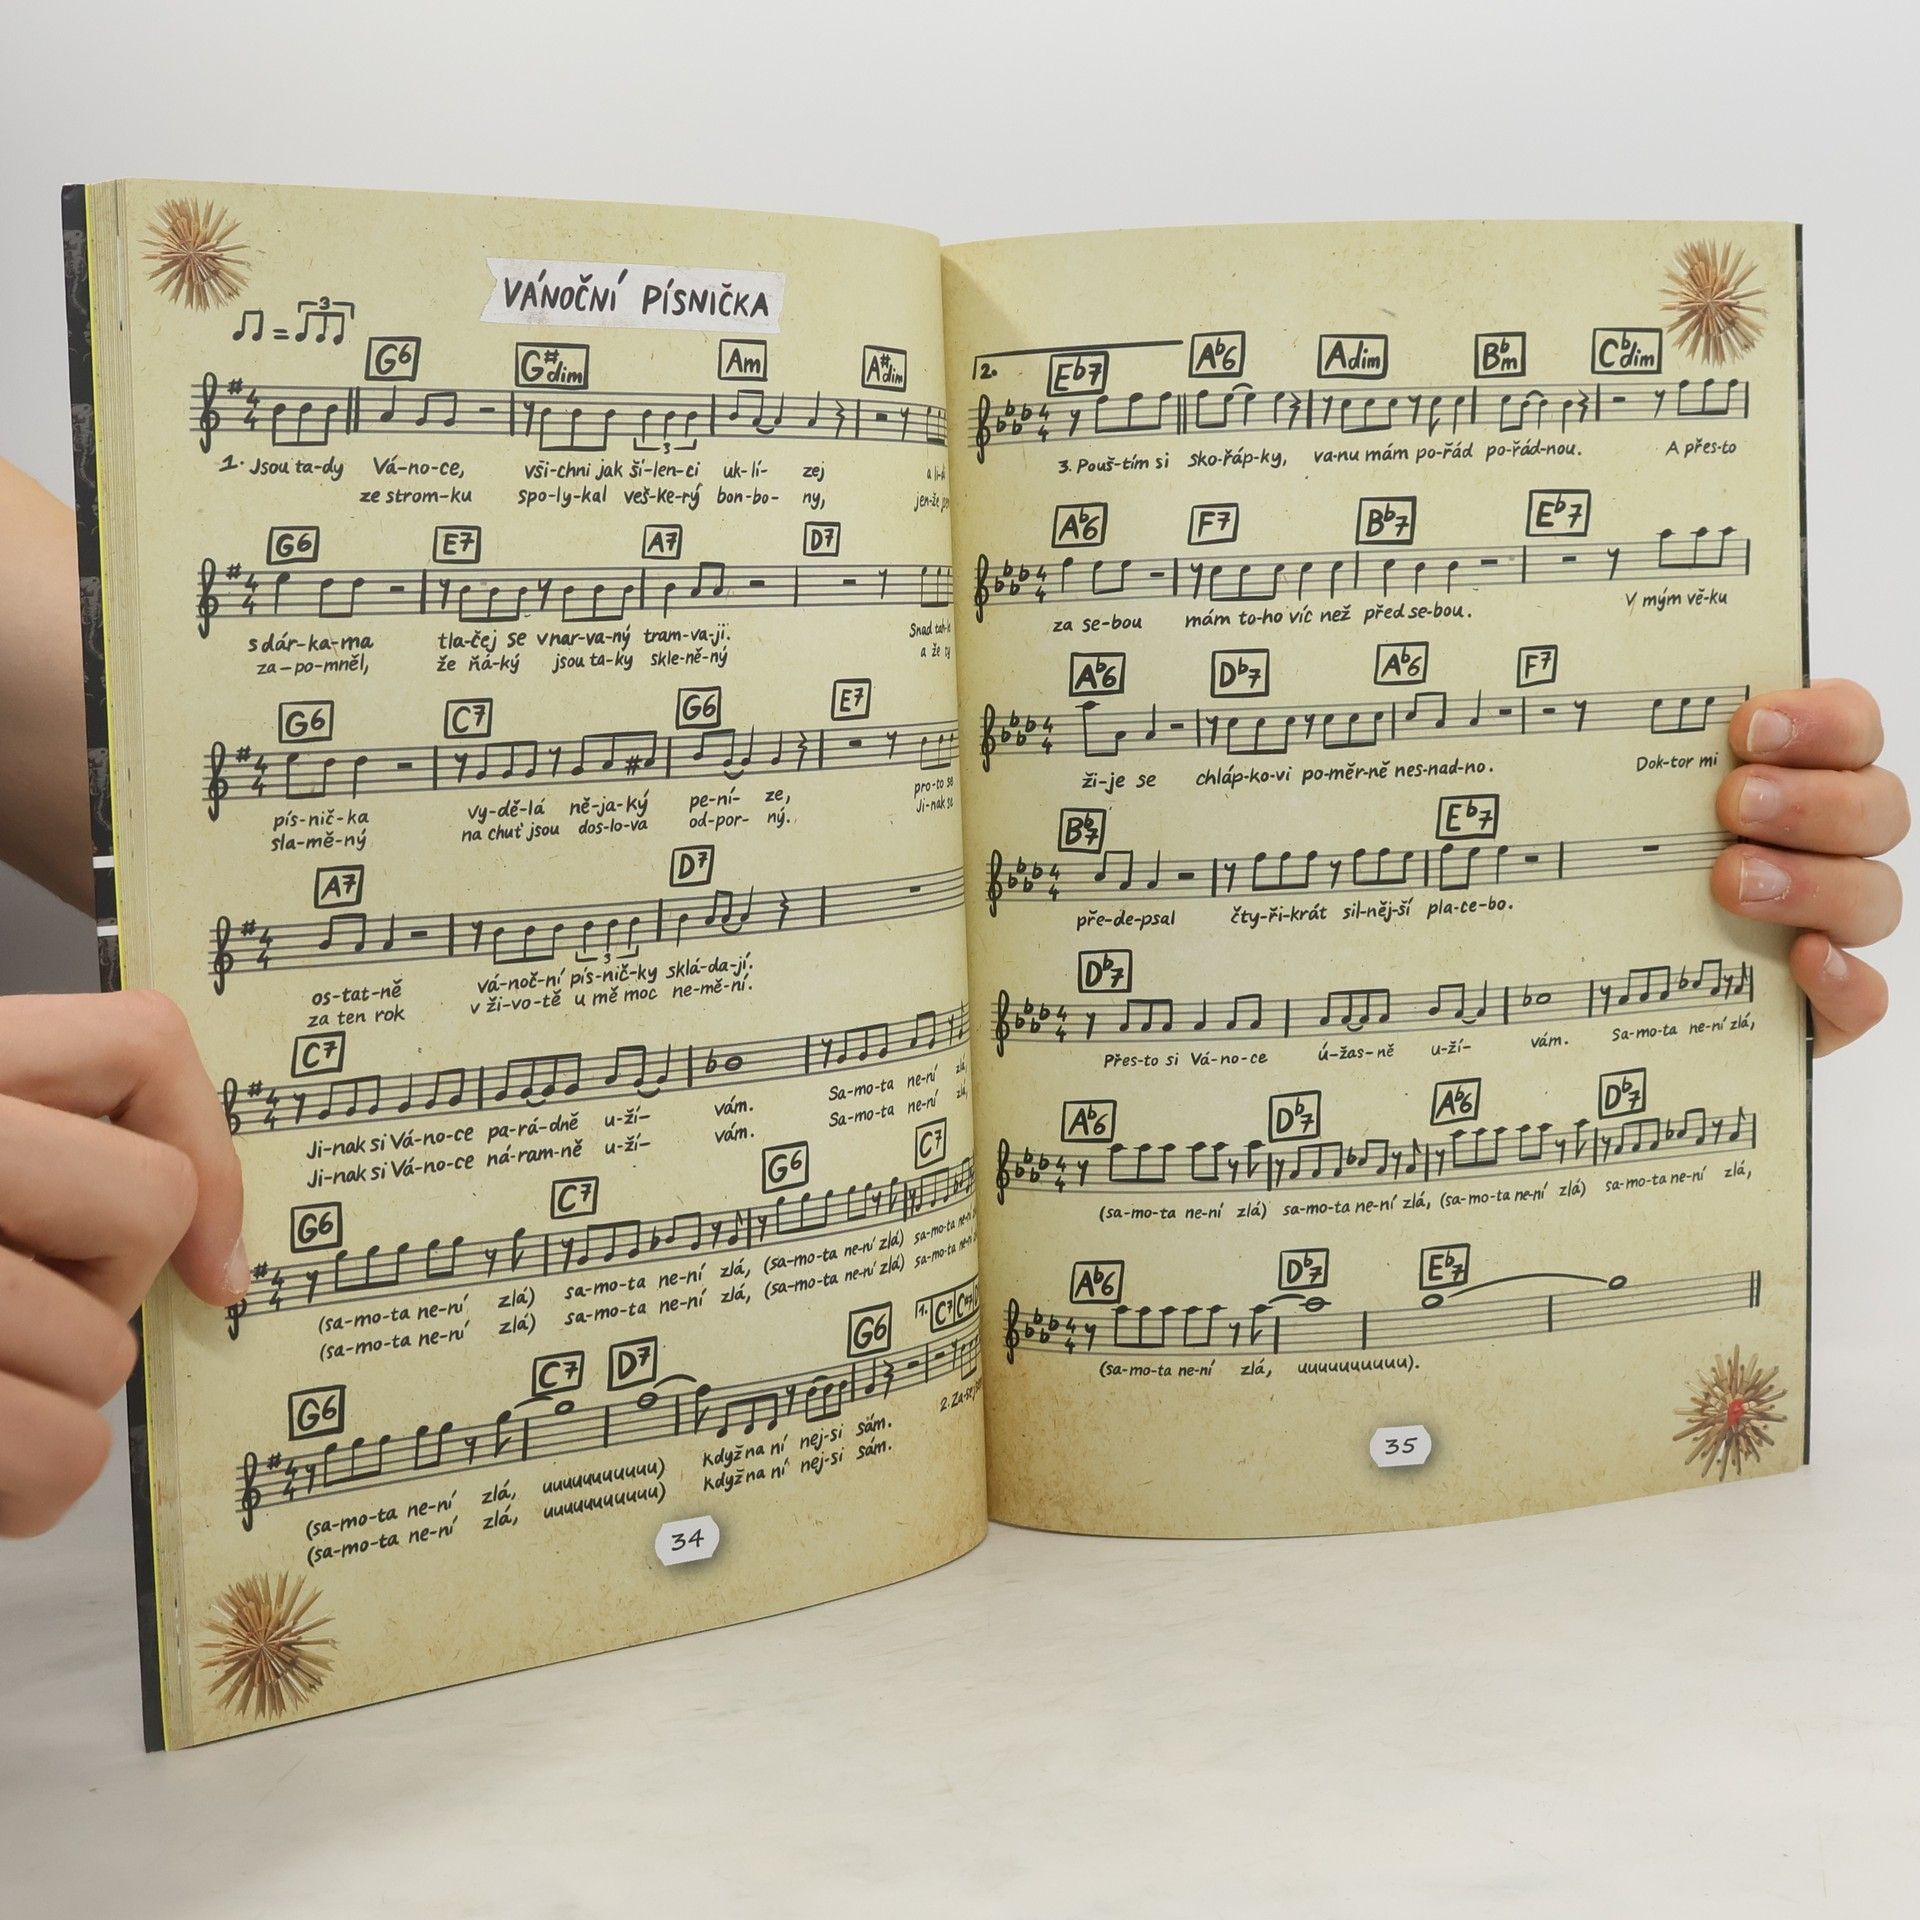 VÁNOČNÍ PÍSNIČKA
3
G6 G#dim Am A#dim
3
1. Jsou ta-dy Vá-no-ce, vši-chni jak ší-len-ci uk-lí- zej a li-
ze strom-ku spo-ly-kal veš-ke-rý bon-bo- ny, jen-že
G6 E7 A7 D7
s dár-ka-ma tla-čej se v nar-va-ný tram-va-ji. Snad
za-po-mněl, že ňá-ký jsou ta-ky skle-ně-ný a že ty
G6 C7 G6 E7
pís-nič-ka vy-dě-lá ně-ja-ký pe-ní- ze, pro-to se
sla-mě-ný na chuť jsou dos-lo-va od-por- ný. Ji-nak se
A7 D7
3
os-tat-ně vá-noč-ní pís-nič-ky sklá-da-jí.
za ten rok v ži-vo-tě u mě moc ne-mě-ní.
C7
Ji-nak si Vá-no-ce pa-rá-dně u-ží- vám. Sa-mo-ta ne-ní zlá,
Ji-nak si Vá-no-ce ná-ram-ně u-ží- vám. Sa-mo-ta ne-ní zlá,
G6 C7 G6 C7
(sa-mo-ta ne-ní zlá) sa-mo-ta ne-ní zlá, (sa-mo-ta ne-ní zlá) sa-mo-ta ne-ní
(sa-mo-ta ne-ní zlá) sa-mo-ta ne-ní zlá, (sa-mo-ta ne-ní zlá) sa-mo-ta ne-ní
G6 C7 D7 G6 1. C7
(sa-mo-ta ne-ní zlá, uuuuuuuuuuu) když na ní nej-si sám. 2. Za-se
(sa-mo-ta ne-ní zlá, uuuuuuuuuuu) když na ní nej-si sám.
34
2. Eb7 Ab6 Adim Bbm Cbdim
3. Pouš-tím si sko-řáp-ky, va-nu mám po-řád po-řád-nou. A přes-to
Ab6 F7 Bb7 Eb7
za se-bou mám to-ho víc než před se-bou. V mým vě-ku
Ab6 Db7 Ab6 F7
ži-je se chláp-ko-vi po-měr-ně nes-nad-no. Dok-tor mi
Bb7 Eb7
pře-de-psal čty-ři-krát sil-něj-ší pla-ce-bo.
Db7
Přes-to si Vá-no-ce ú-žas-ně u-ží- vám. Sa-mo-ta ne-ní zlá,
Ab6 Db7 Ab6 Db7
(sa-mo-ta ne-ní zlá) sa-mo-ta ne-ní zlá, (sa-mo-ta ne-ní zlá) sa-mo-ta ne-ní zlá,
Ab6 Db7 Eb7
(sa-mo-ta ne-ní zlá, uuuuuuuuuu).
35